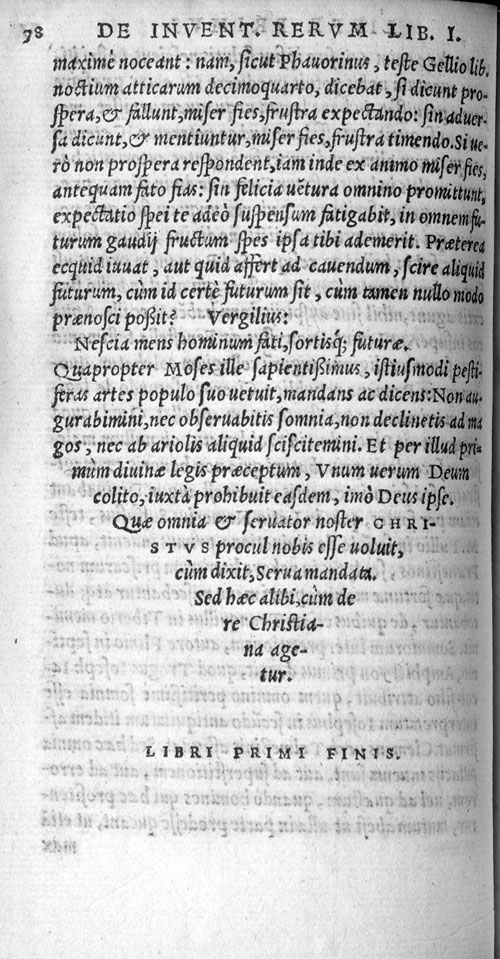 98 DE INVENT. RERVM LIB. I.
maximè noceant: nam, sicut Phauorinus, teste Gellio lib.
noctium atticarum decimoquarto, dicebat, si dicunt pro-
spera, & fallunt, miser fies, frustra expectando: sin aduer-
sa dicunt, & mentiuntur, miser fies, frustra timendo. Si ue-
rò non prospera respondent, iam inde ex animo miser fies,
antequam fato fias: sin felicia uẽtura omnino promittunt,
expectatio spei te adeò suspensum fatigabit, in omnem fu-
turum gaudij fructum spes ipsa tibi ademerit. Præterea
ecquid iuuat, aut quid affert ad cauendum, scire aliquid
futurum, cùm id certè futurum sit, cùm tamen nullo modo
prænosci poßit? Vergilius:
Nescia mens hominum fati, sortisq́; futuræ.
Quapropter Moses ille sapientißimus, istiusmodi pesti-
feras artes populo suo uetuit, mandans ac dicens: Non au-
gurabimini, nec obseruabitis somnia, non declinetis ad ma
gos, nec ab ariolis aliquid sciscitemini. Et per illud pri-
mùm diuinæ legis præceptum, Vnum uerum Deum
colito, iuxtà prohibuit easdem, imò Deus ipse.
Quæ omnia & seruator noster CHRI-
STVS procul nobis esse uoluit,
cùm dixit, Serua mandata.
Sed hæc alibi, cùm de
re Christia-
na age-
tur.
LIBRI PRIMI FINIS.